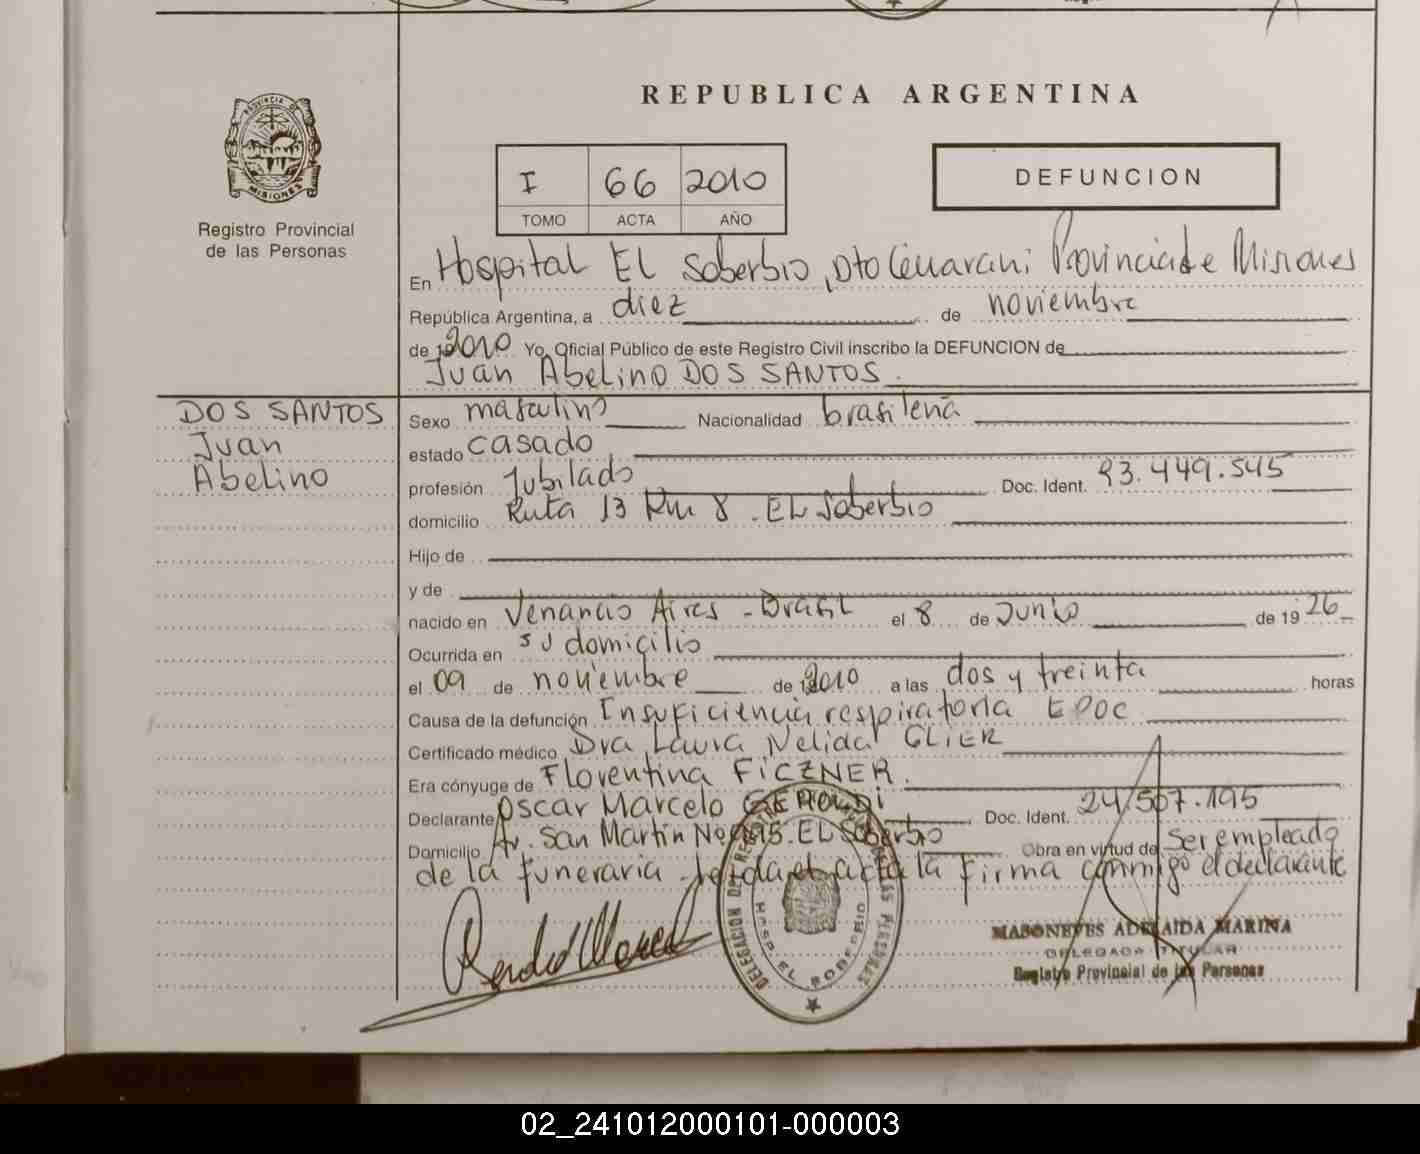 REPUBLICA ARGENTINA
PROVINCIA DE
MISIONES
Registro Provincial
de las Personas
I 66 2010
TOMO ACTA AÑO
DEFUNCION
En Hospital EL Soberbio, Dto Guarani Provincia de Misiones
República Argentina, a diez de noviembre
de 2010 Yo, Oficial Público de este Registro Civil inscribo la DEFUNCION de
Juan Abelino DOS SANTOS.
DOS SANTOS
Juan
Abelino
Sexo masculino Nacionalidad brasileña
estado casado
profesión Jubilado Doc. Ident. 93.449.545
domicilio Ruta 13 Km 8 - EL Soberbio
Hijo de
y de
nacido en Venancio Aires - Brasil el 8 de Junio de 1926
Ocurrida en su domicilio
el 09 de noviembre de 2010 a las dos y treinta horas
Causa de la defunción Insuficiencia respiratoria EPOC
Certificado médico Dra Laura Nelida GLIER
Era cónyuge de Florentina FICZNER.
Declarante Oscar Marcelo Doc. Ident. 24.507.195
Domicilio Av. San Martin EL Soberbio Obra en virtud de ser empleado
de la funeraria leida el acta la firma conmigo el declarante
DELEGACION DEL REGISTRO PROVINCIAL DE LAS PERSONAS
HOSP. EL SOBERBIO
MASONEVES ADELAIDA MARINA
DELEGADA TITULAR
Registro Provincial de las Personas
02_241012000101-000003